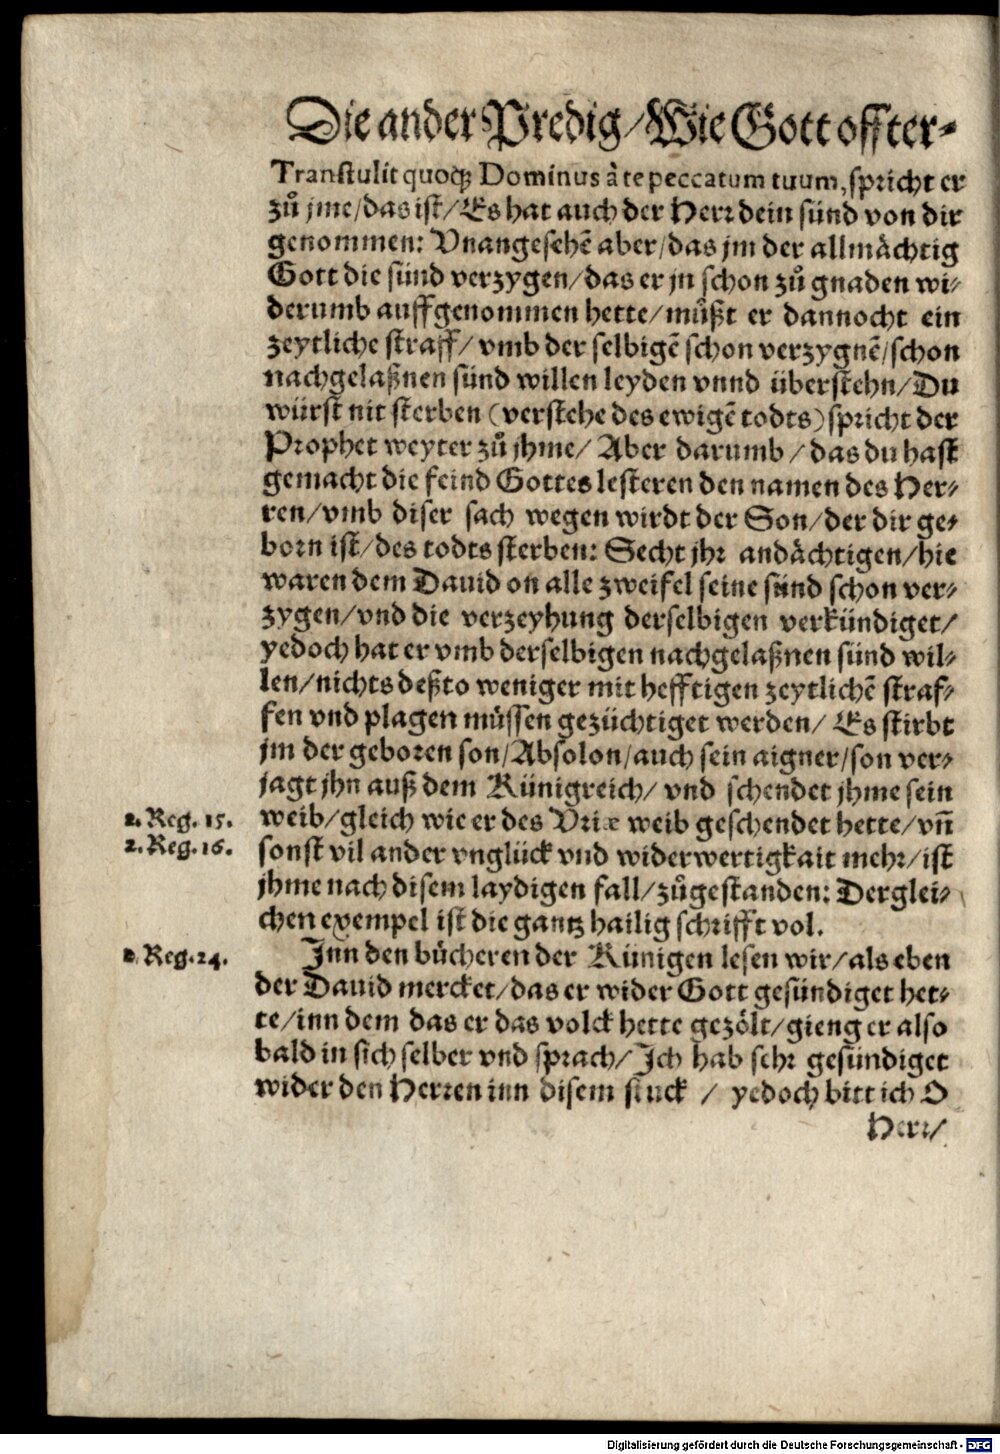 Die ander Predig/ Wie Gott offter-
Transtulit quoqꝫ Dominus à te peccatum tuum, spricht er
zů jme/ das ist/ Es hat auch der Herr dein sünd von dir
genommen: Vnangesehẽ aber/ das jm der allmächtig
Gott die sünd verzygen/ das er jn schon zů gnaden wi-
derumb auffgenommen hette/ můßt er dannocht ein
zeytliche straff/ vmb der selbigẽ schon verzygnẽ/ schon
nachgelaßnen sünd willen leyden vnnd überstehn/ Du
würst nit sterben (verstehe des ewigẽ todts) spricht der
Prophet weyter zů jhme/ Aber darumb/ das du hast
gemacht die feind Gottes lesteren den namen des Her-
ren/ vmb diser sach wegen wirdt der Son/ der dir ge-
born ist/ des todts sterben: Secht jhr andächtigen/ hie
waren dem Dauid on alle zweifel seine sünd schon ver-
zygen/ vnd die verzeyhung derselbigen verkündiget/
yedoch hat er vmb derselbigen nachgelaßnen sünd wil-
len/ nichts deßto weniger mit hefftigen zeytlichẽ straf-
fen vnd plagen müssen gezüchtiget werden/ Es stirbt
jm der geboren son/ Absolon/ auch sein aigner/ son ver-
jagt jhn auß dem Künigreich/ vnd schendet jhme sein
2. Reg. 15. weib/ gleich wie er des Vriæ weib geschendet hette/ vñ
2. Reg. 16. sonst vil ander vnglück vnd widerwertigkait mehr/ ist
jhme nach disem laydigen fall/ zůgestanden: Derglei-
chen exempel ist die gantz hailig schrifft vol.
2. Reg. 24. Inn den bücheren der Künigen lesen wir/ als eben
der Dauid mercket/ das er wider Gott gesündiget het-
te/ inn dem das er das volck hette gezölt/ gieng er also
bald in sich selber vnd sprach/ Ich hab sehr gesündiget
wider den Herren inn disem stuck/ yedoch bitt ich O
Herr/
Digitalisierung gefördert durch die Deutsche Forschungsgemeinschaft - DFG